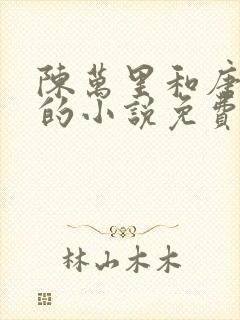 陳萬里和唐
的小說免費
林山木木